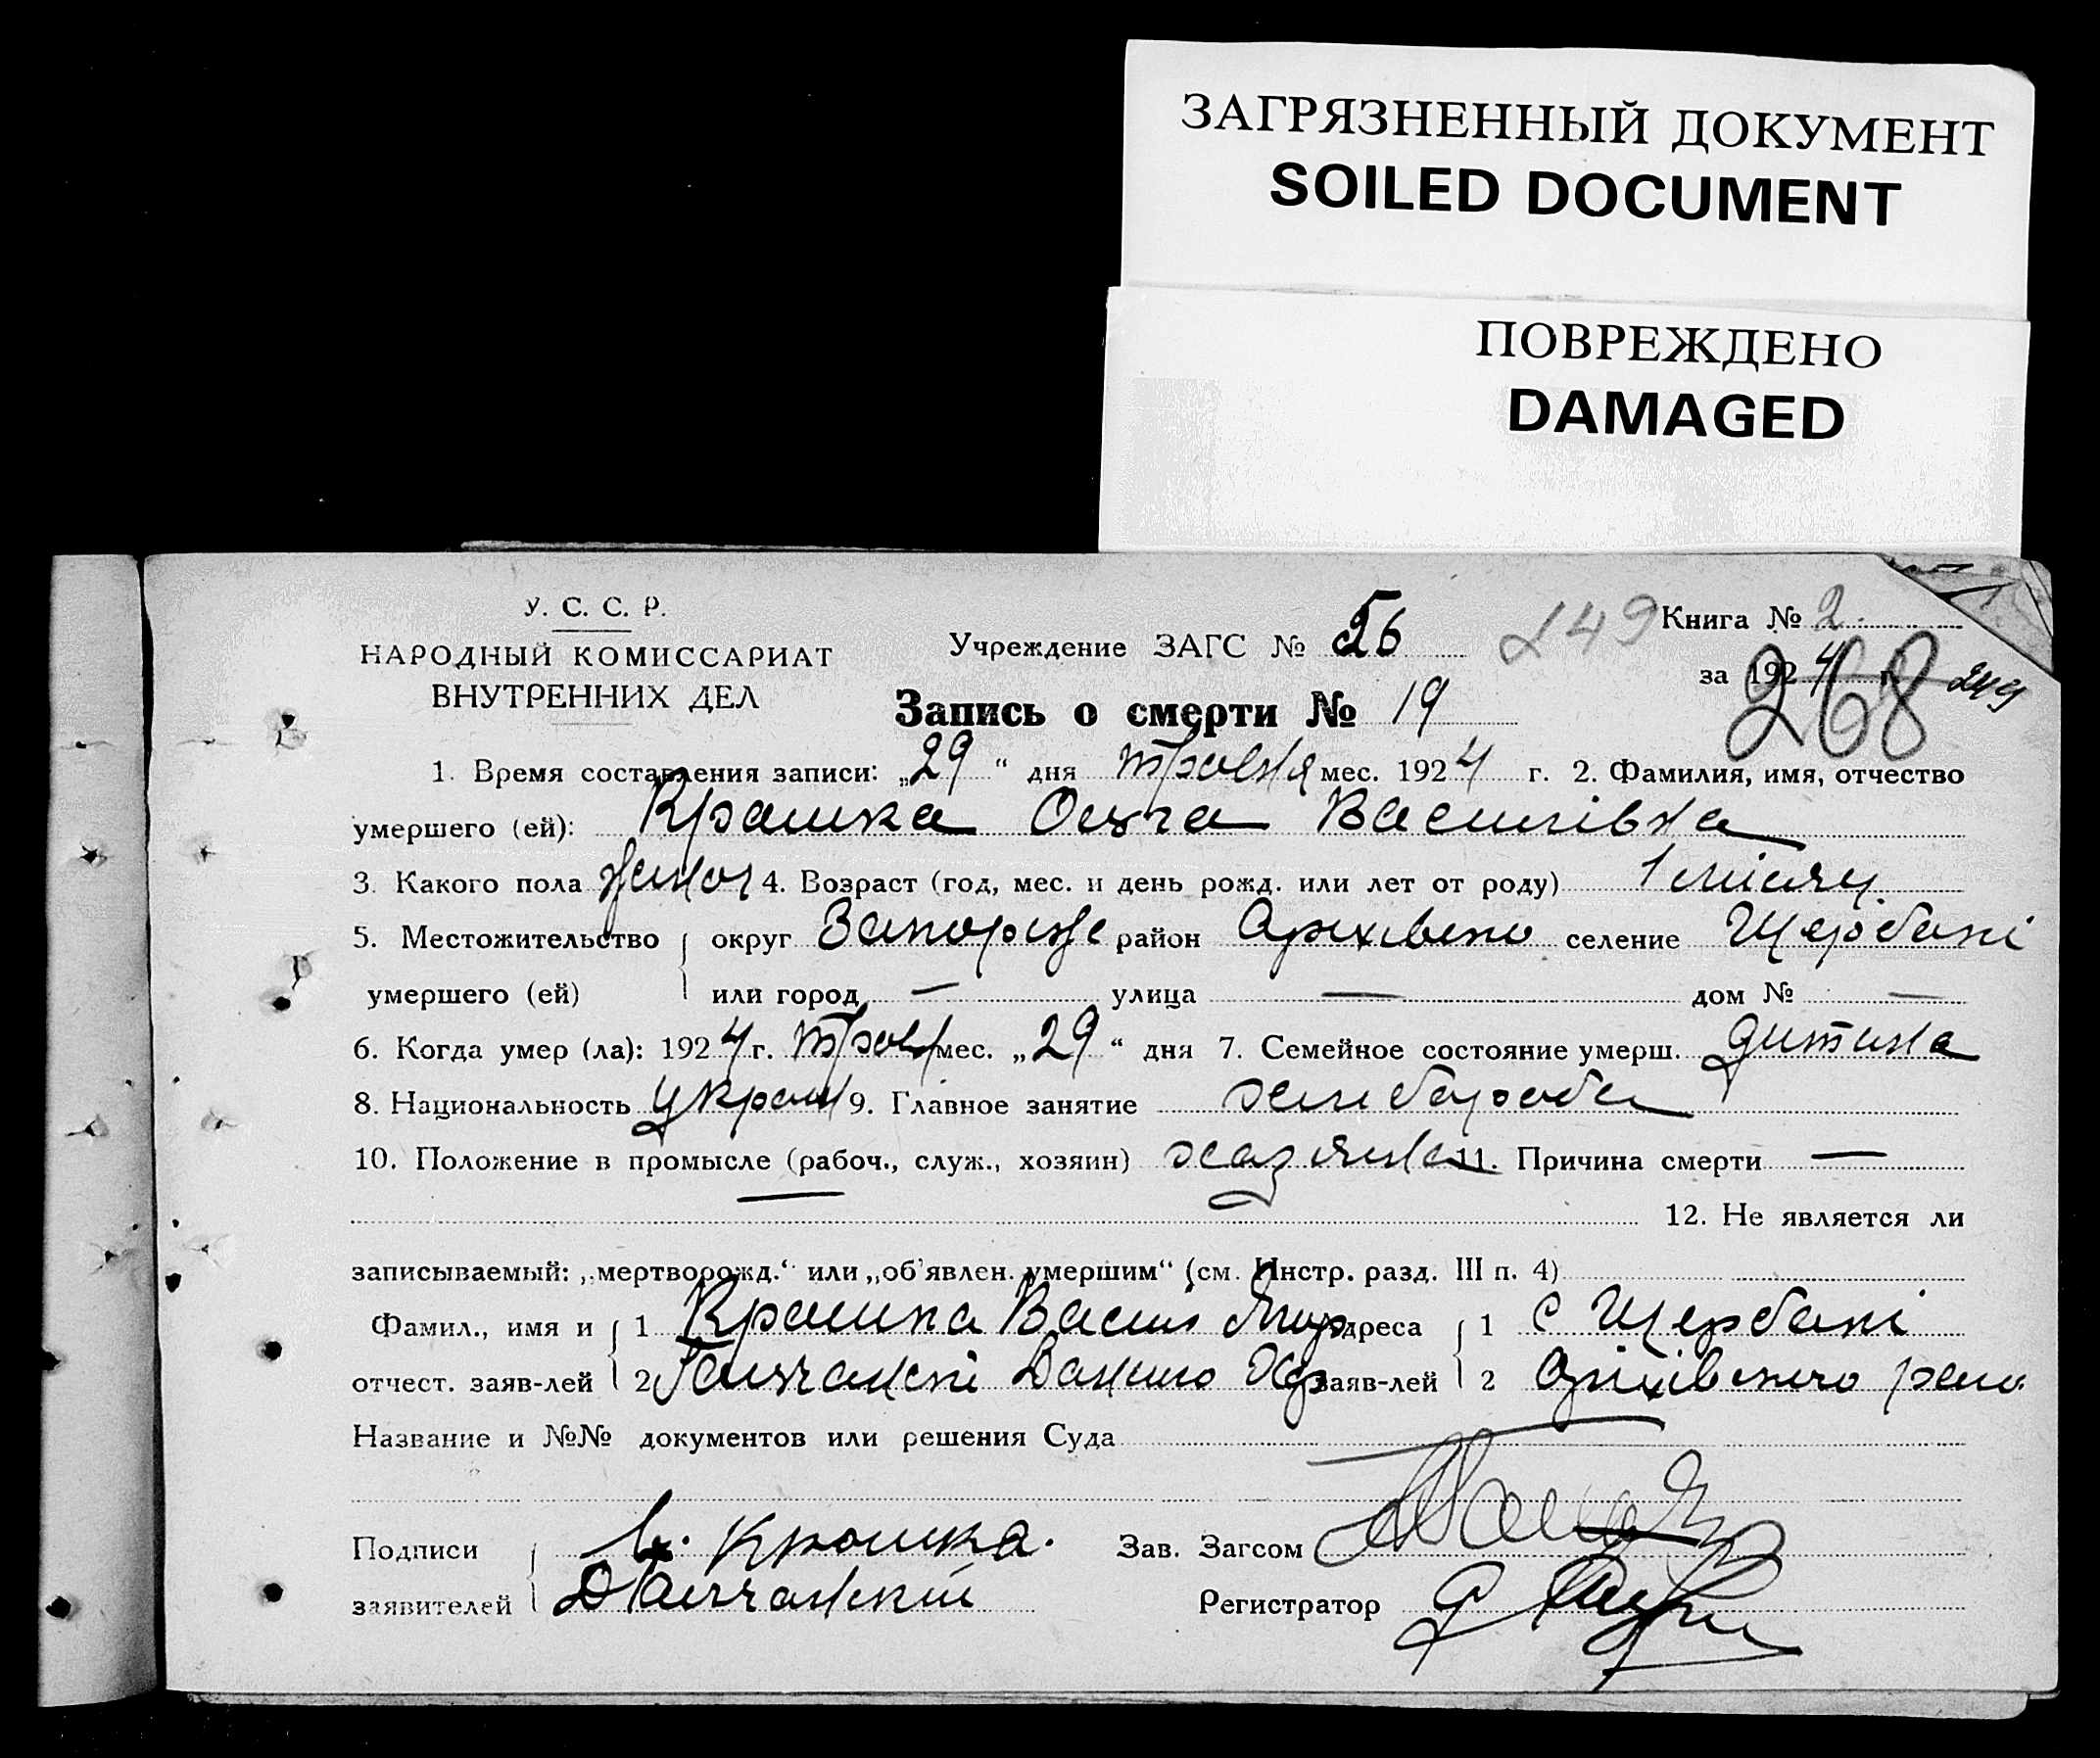 ЗАГРЯЗНЕННЫЙ ДОКУМЕНТ
SOILED DOCUMENT
ПОВРЕЖДЕНО
DAMAGED
У. С. С. Р.
НАРОДНЫЙ КОМИССАРИАТ
ВНУТРЕННИХ ДЕЛ
Учреждение ЗАГС № 56
249
Книга № 2
за 1924 г.
268
249
Запись о смерти № 19
1. Время составления записи: „29“ дня травня мес. 1924 г. 2. Фамилия, имя, отчество
умершего (ей): Крашка Ольга Василівна
3. Какого пола жіноч 4. Возраст (год, мес. и день рожд. или лет от роду) 1 місяц
5. Местожительство округ Запоріже район Оріхівсько селение Щербакі
умершего (ей) или город — улица — дом № —
6. Когда умер (ла): 1924 г. трав мес. „29“ дня 7. Семейное состояние умерш. дитина
8. Национальность україн 9. Главное занятие хлібороба
10. Положение в промысле (рабоч., служ., хозяин) хазяина 11. Причина смерти —
—
12. Не является ли
записываемый: „мертворожд.“ или „об'явлен. умершим“ (см. Инстр. разд. III п. 4)
Фамил., имя и 1 Крашка Василь Адреса 1 С Щербакі
отчест. заяв-лей 2 Данило заяв-лей 2 Оріхівського райо
Название и №№ документов или решения Суда
Подписи В. Крошка. Зав. Загсом
заявителей Регистратор